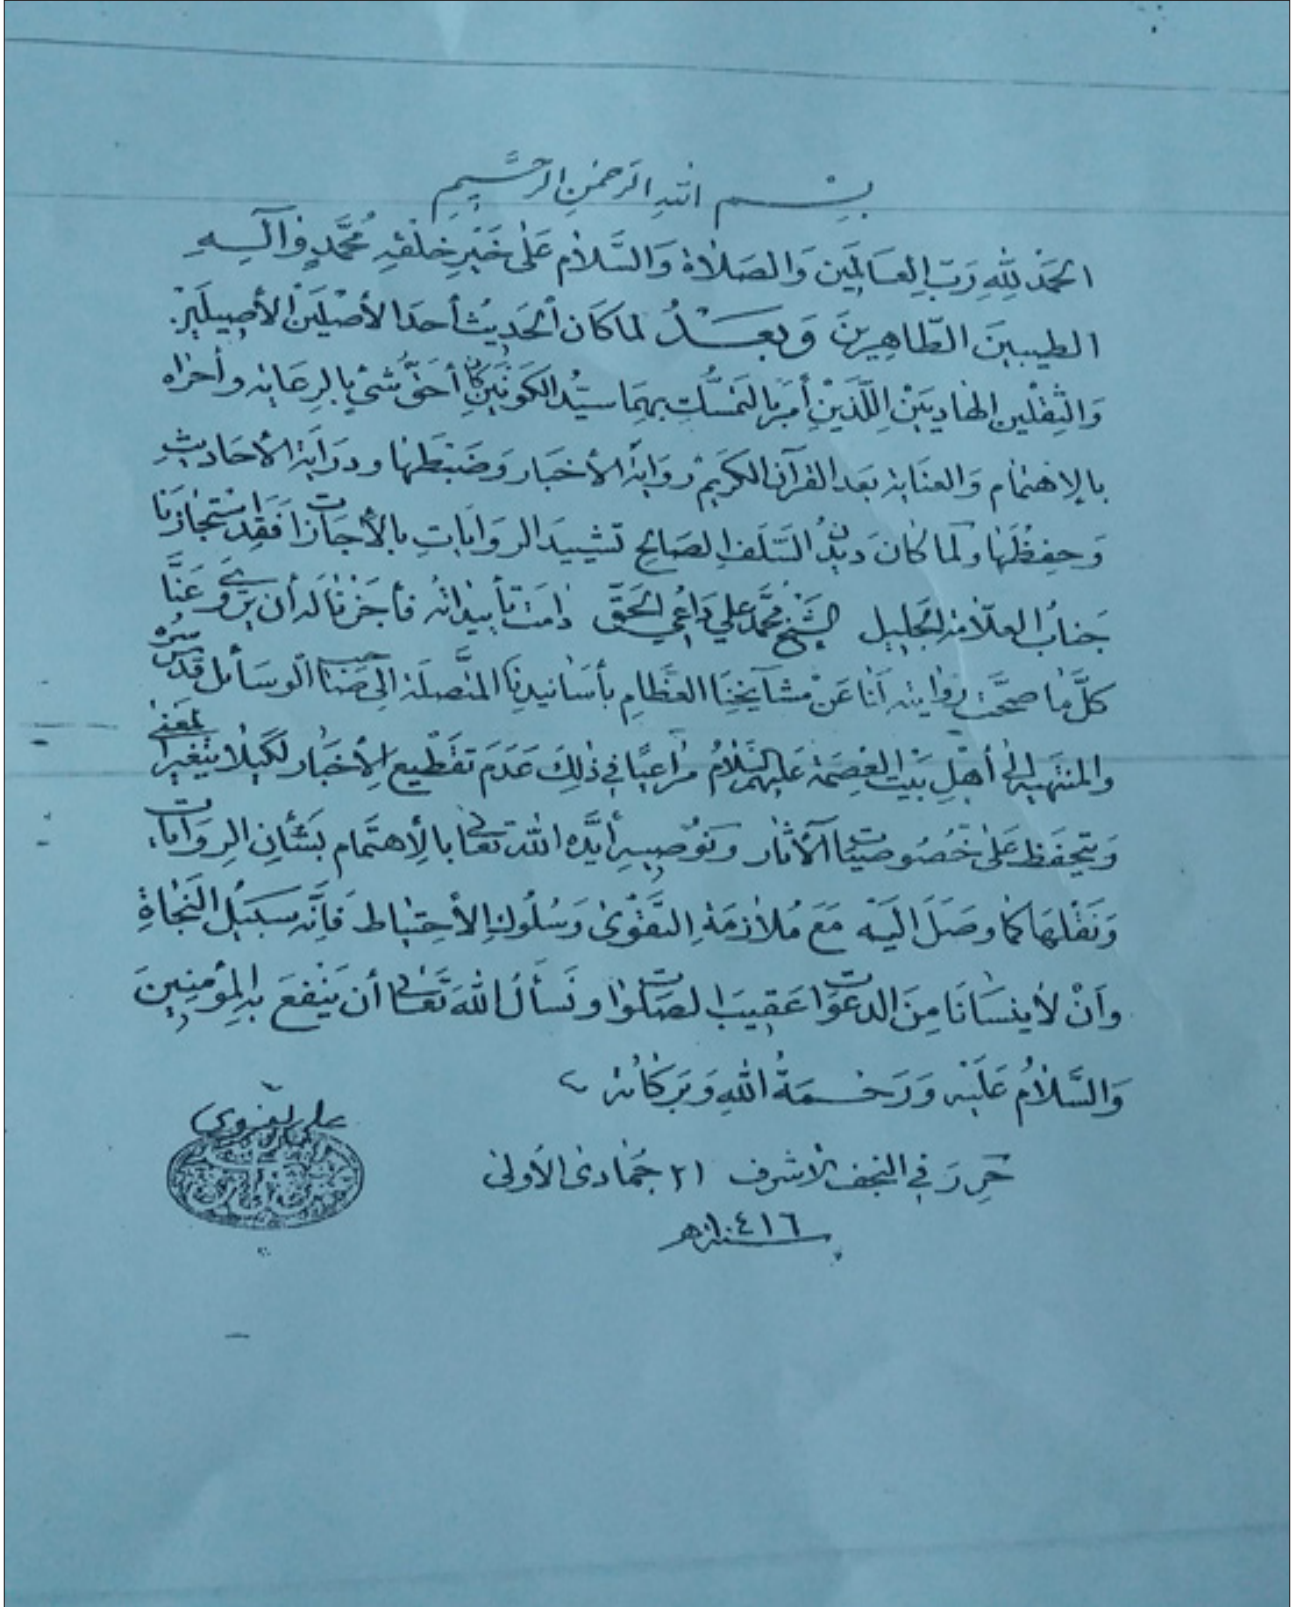 بِسْم اللهِ الرَّحمٰنِ الرَّحِيمِ
الحَمْدُ لِلّٰهِ رَبِّ العَالَمِين وَالصَلَاة وَالسَّلَام عَلىٰ خَيْرِ خَلْقِهِ مُحَمَّدٍ وَآلِهِ
الطيبينَ الطَّاهِرِينَ وَبعَدْ لما كَان الحَدِيثُ أحدَ الأصْلَيْنِ الأصِيلَيْن
وَالثِقْلين الهَادِيَيْنِ اللَّذَيْنِ أَمَرَ بالتمَسُّكِ بِهِمَا سيِّد الكَونَيْنِ كَانَ أحَقَّ شئ بالرِعَايَة وأحرَاه
بالإهتمام وَالعنَايَة بَعد القُرآن الكَرِيم رِوَايَة الأخبَار وَضَبْطَهَا ودرَايَة الأحَاديثِ
وَحِفظَهَا ولَما كَانَ دَيدنُ السَّلَفِ الصَالحِ تشييدَ الروَايَاتِ بالأجَازَات فَقَدِ اسْتَجَازَنَا
جَنابُ العلّامَة الجَلِيل الشَّيْخ مُحَمَّد علي دَاعي الحَقّ دَامَت تأييدَاتُه فأجَزنَا لَه أن يَروِيَ عَنَّا
كلَّ مَا صحَّت رِوَايَته لَنا عَنْ مشَايخِنَا العظَامِ بأسَانيدِنَا المتَّصلَة الى صَاحب الوسَائل قدّس سره
والمنتهية إلى أهْلِ بَيْت العِصمَة عَليهم السَّلَامُ مُرَاعيًا في ذٰلِكَ عَدَمَ تقطيع الأخبَار لكَيلا يتغير المَعنى
وَيتحفظ عَلىٰ خُصُوصيَّات الآثار وَنُوصِيهِ أيَّدَه الله تعالى بالإهتمام بشَأنِ الروَايَات
وَنَقْلِهَا كمَا وصَلَ اليه مَعَ مُلَازَمَةِ التقْوىٰ وَسُلُوكِ الأحتيَاط فَإنَّه سبيل النجَاة
وَأنْ لَا ينسَانَا مِنَ الدعوَات عَقيبَ الصلَوَات ونَسأَلُ اللهَ تَعَالىٰ أن يَنْفعَ به المؤمنِينَ
وَالسَّلامُ عَلَيْه وَرَحمَةُ اللهِ وَبَركَاتُه
حُرِرَ في النجف الاشرف ٢١ جُمَادى الأولىٰ
سنة ١٤١٦ هـ
علي الغروي